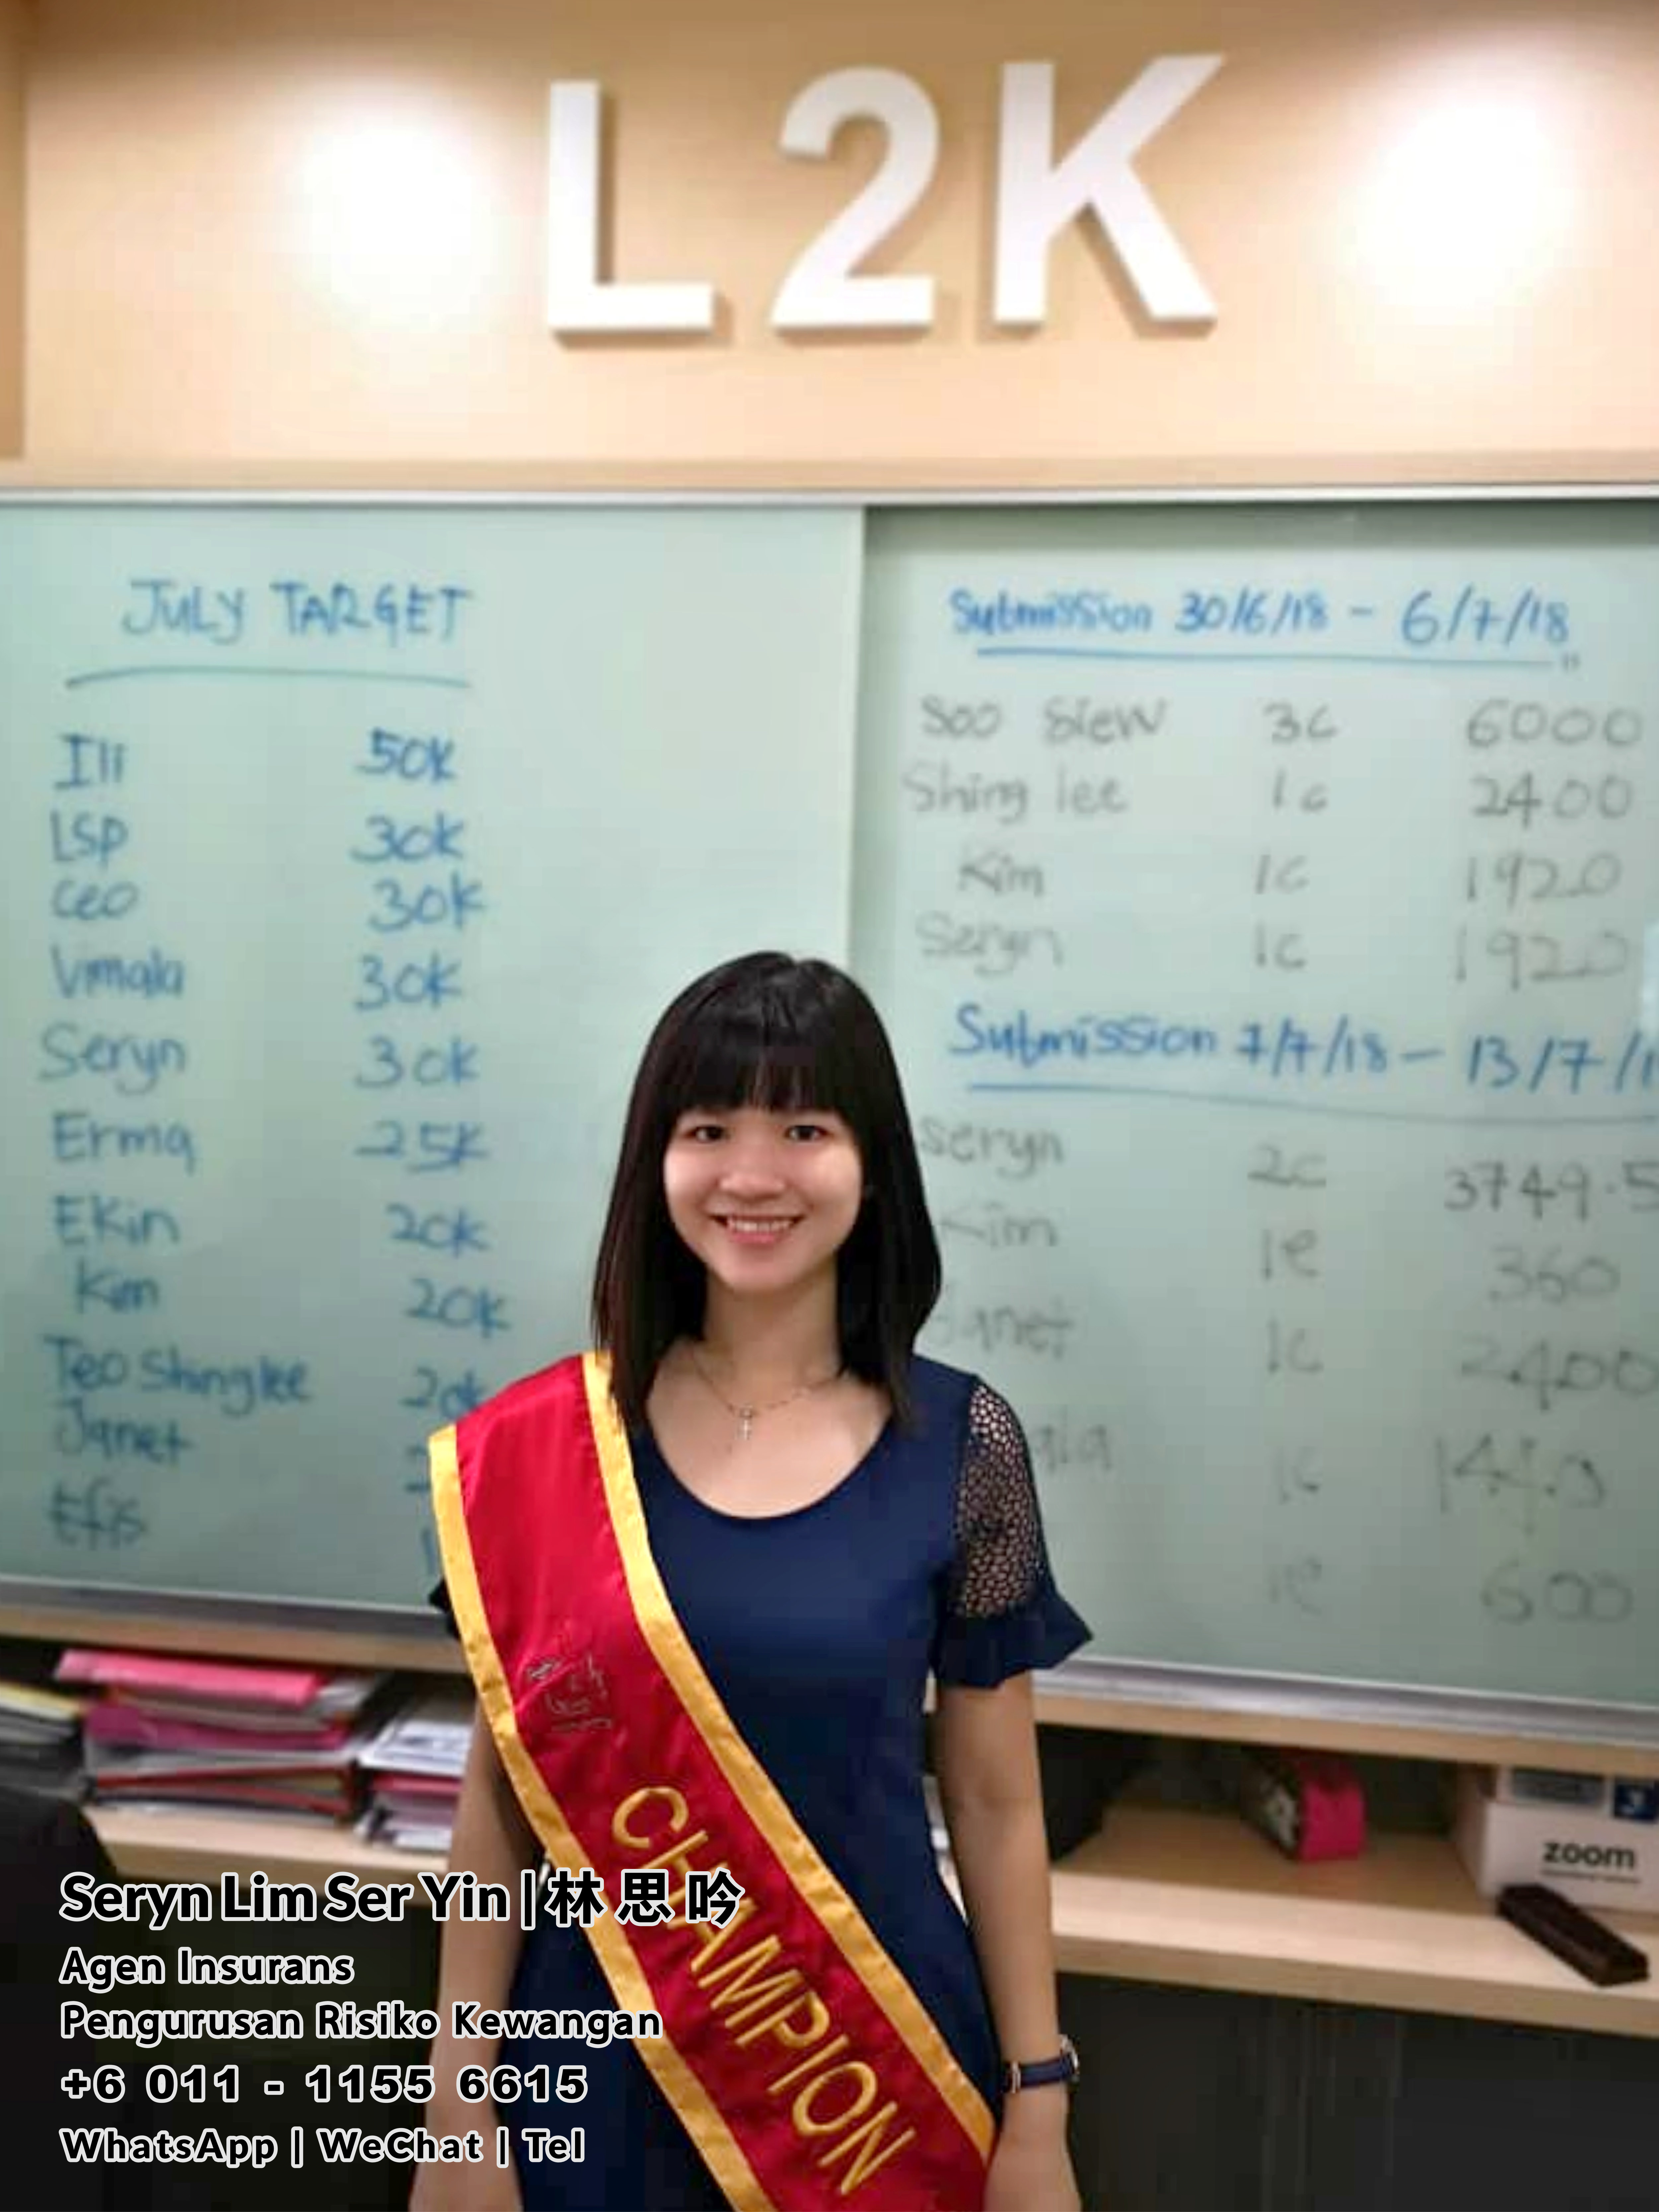 L2K
JULY TARGET
Illi 50K
LSP 30K
CEO 30K
Vmala 30K
Seryn 30K
Erma 25K
EKin 20K
Kim 20K
Teo Shinglee
Janet
Submission 30/6/18 - 6/7/18
Soo Siew 3c 6000
Shing lee 1c 2400
Kim 1c 1920
Seryn 1c 1920
Submission 7/7/18 - 13/7/1
Seryn 2c 3749.5
Kim 1e 360
Janet 1c 2400
ala 1c
1e 600
zoom
CHAMPION
Seryn Lim Ser Yin | 林思吟
Agen Insurans
Pengurusan Risiko Kewangan
+6 011 - 1155 6615
WhatsApp | WeChat | Tel